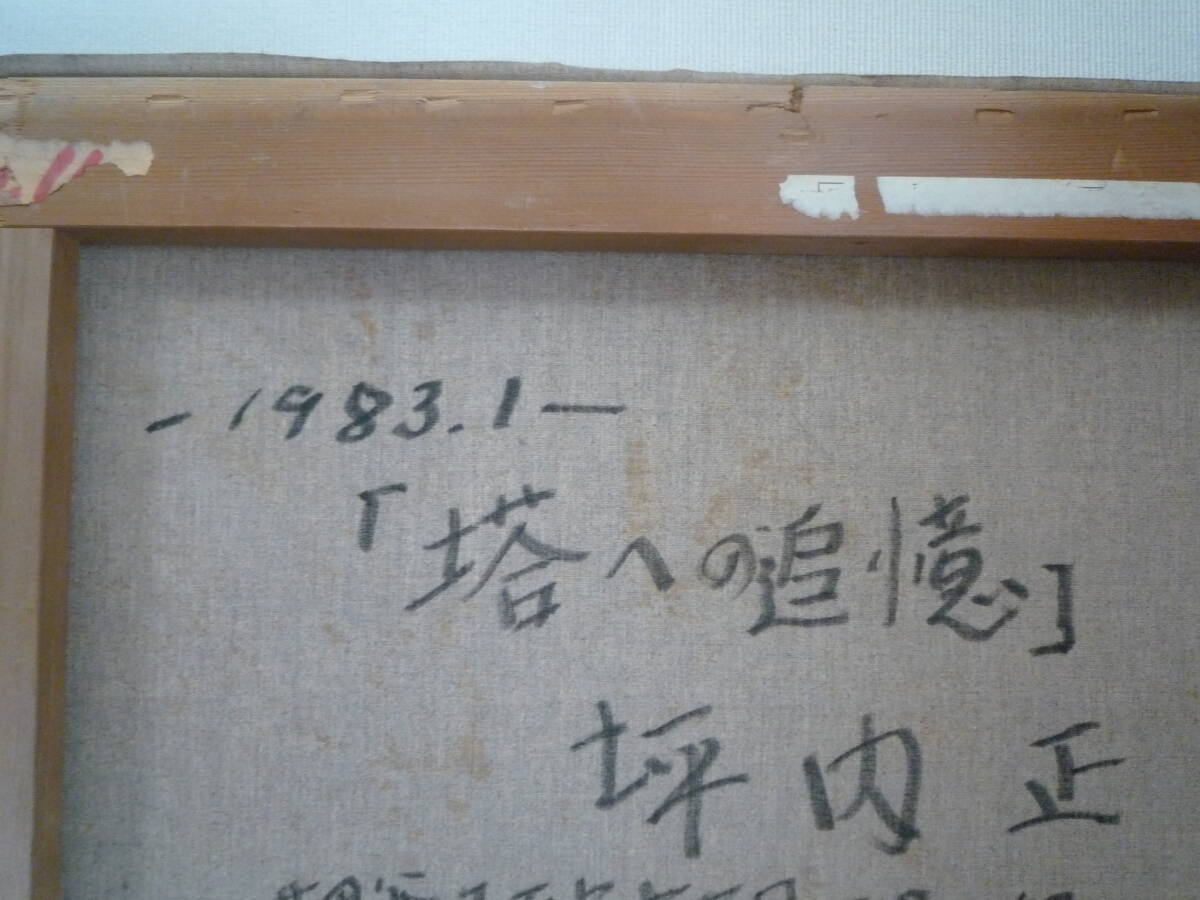 -1983.1-
「塔への追憶」
坪内正